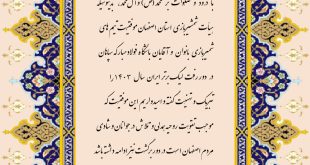 با درود و صلوات بر محمد(ص) و آل محمد، بدینوسیله
هیات شمشیربازی استان اصفهان موفقیت تیم های
شمشیربازی بانوان و آقایان باشگاه فولاد مبارکه سپاهان
در دور رفت لیگ برتر ایران سال ۱۴۰۳ را
تبریک و تهنیت گفته و امیدواریم این موفقیت که
موجب تقویت روحیه همدلی و تلاش در جوانان و شادی
مردم اصفهان است در دور برگشت نیز ادامه داشته باشد